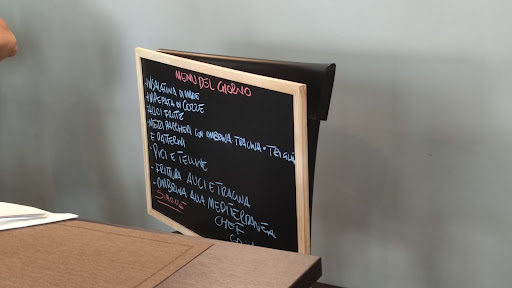 MENU DEL GIORNO
- INSALATINA DI MARE
- IMPEPATA DI COZZE
- ALICI FRITTE
- MEZZI PACCHERI CON OMBRINA TRACINA
E DATTERINI
- PICI E TELLINE
- FRITTURA ALICI E TRACINA
- OMBRINA ALLA MEDITERRANEA
CHEF